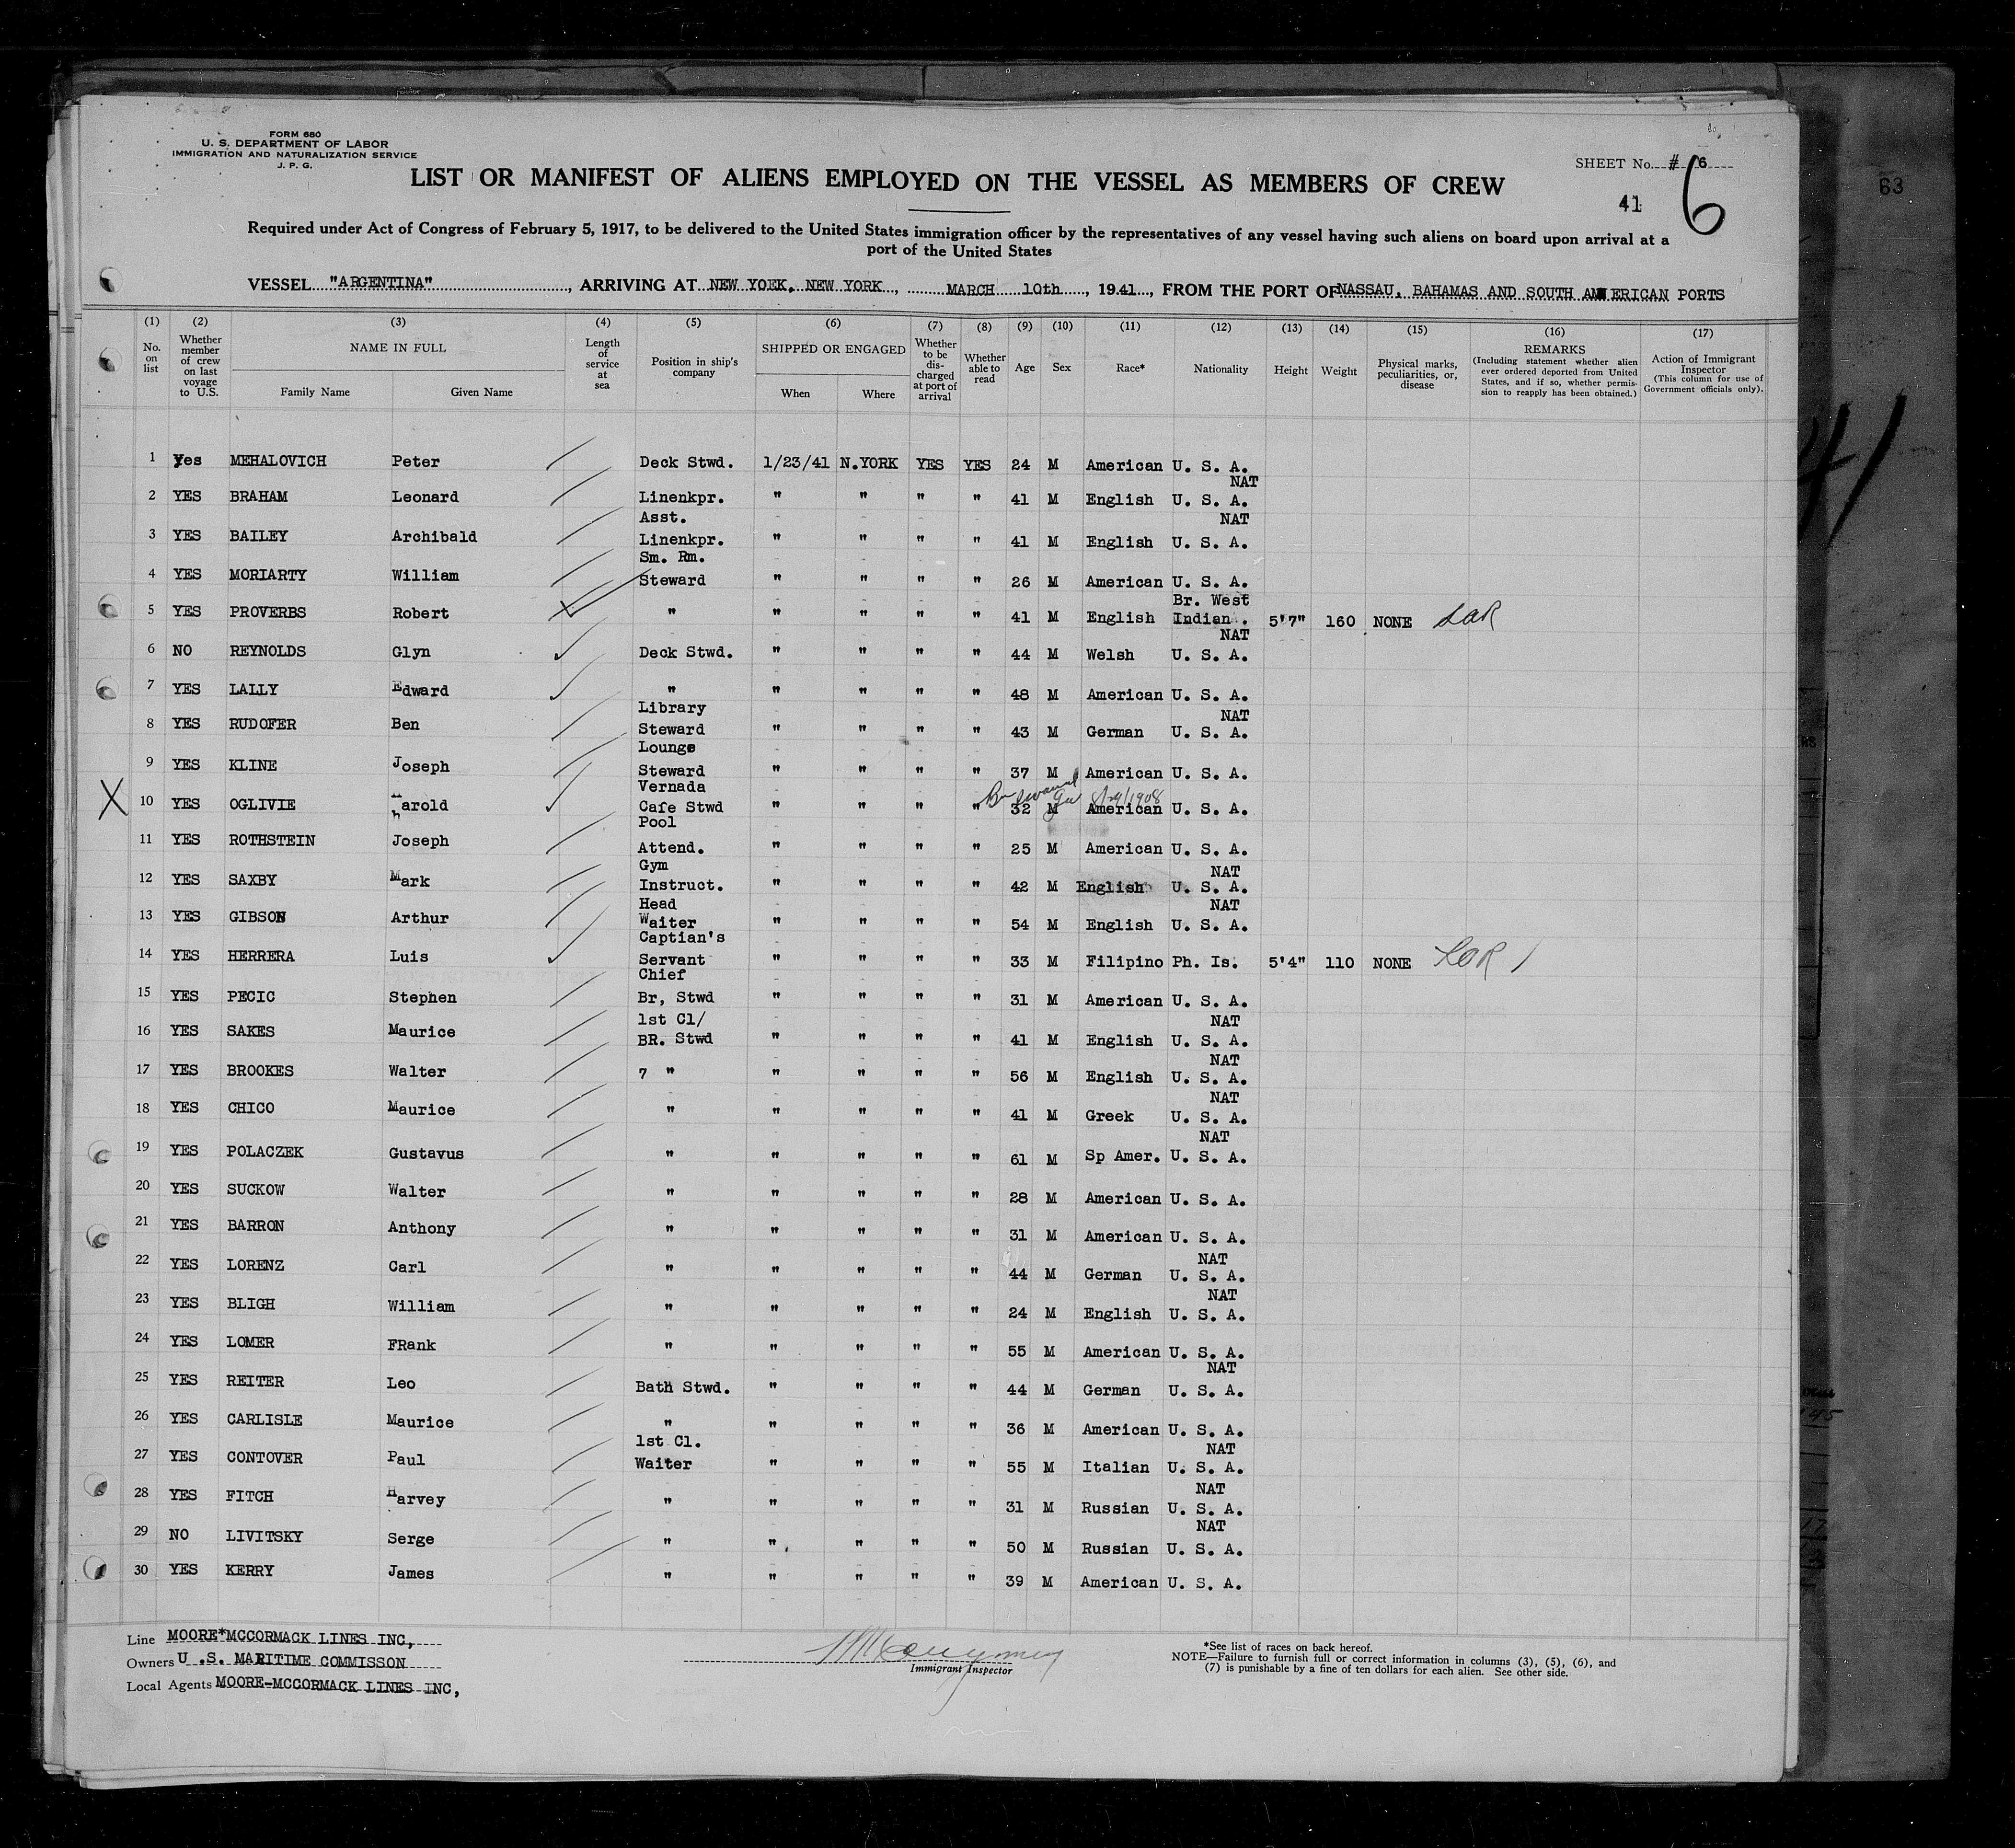 FORM 680
U. S. DEPARTMENT OF LABOR
IMMIGRATION AND NATURALIZATION SERVICE
J. P. G.
SHEET No. # 6
6
41
63
LIST OR MANIFEST OF ALIENS EMPLOYED ON THE VESSEL AS MEMBERS OF CREW
Required under Act of Congress of February 5, 1917, to be delivered to the United States immigration officer by the representatives of any vessel having such aliens on board upon arrival at a
port of the United States
VESSEL "ARGENTINA", ARRIVING AT NEW YOEK, NEW YORK, MARCH 10th, 1941, FROM THE PORT OF NASSAU, BAHAMAS AND SOUTH AMERICAN PORTS
(1) No. on list (2) Whether member of crew on last voyage to U.S. (3) NAME IN FULL Family Name Given Name (4) Length of service at sea (5) Position in ship's company (6) SHIPPED OR ENGAGED When Where (7) Whether to be discharged at port of arrival (8) Whether able to read (9) Age (10) Sex (11) Race* (12) Nationality (13) Height (14) Weight (15) Physical marks, peculiarities, or, disease (16) REMARKS (Including statement whether alien ever ordered deported from United States, and if so, whether permission to reapply has been obtained.) (17) Action of Immigrant Inspector (This column for use of Government officials only).
1 Yes MEHALOVICH Peter Deck Stwd. 1/23/41 N.YORK YES YES 24 M American U. S. A.
2 YES BRAHAM Leonard Linenkpr. " " " " 41 M English NAT U. S. A.
3 YES BAILEY Archibald Asst. Linenkpr. " " " " 41 M English NAT U. S. A.
4 YES MORIARTY William Sm. Rm. Steward " " " " 26 M American U. S. A.
5 YES PROVERBS Robert " " " " " 41 M English Br. West Indian. 5'7" 160 NONE
6 NO REYNOLDS Glyn Deck Stwd. " " " " 44 M Welsh NAT U. S. A.
7 YES LALLY Edward " " " " " 48 M American U. S. A.
8 YES RUDOFER Ben Library Steward " " " " 43 M German NAT U. S. A.
9 YES KLINE Joseph Lounge Steward " " " " 37 M American U. S. A.
X 10 YES OGLIVIE Harold Vernada Cafe Stwd " " " " 32 M American U. S. A. 8/29/1908
11 YES ROTHSTEIN Joseph Pool Attend. " " " " 25 M American U. S. A.
12 YES SAXBY Mark Gym Instruct. " " " " 42 M English NAT U. S. A.
13 YES GIBSON Arthur Head Waiter " " " " 54 M English NAT U. S. A.
14 YES HERRERA Luis Captian's Servant " " " " 33 M Filipino Ph. Is. 5'4" 110 NONE
15 YES PECIC Stephen Chief Br, Stwd " " " " 31 M American U. S. A.
16 YES SAKES Maurice 1st Cl/ BR. Stwd " " " " 41 M English NAT U. S. A.
17 YES BROOKES Walter 7 " " " " " 56 M English NAT U. S. A.
18 YES CHICO Maurice " " " " " 41 M Greek NAT U. S. A.
19 YES POLACZEK Gustavus " " " " " 61 M Sp Amer. NAT U. S. A.
20 YES SUCKOW Walter " " " " " 28 M American U. S. A.
21 YES BARRON Anthony " " " " " 31 M American U. S. A.
22 YES LORENZ Carl " " " " " 44 M German NAT U. S. A.
23 YES BLIGH William " " " " " 24 M English NAT U. S. A.
24 YES LOMER FRank " " " " " 55 M American U. S. A.
25 YES REITER Leo Bath Stwd. " " " " 44 M German NAT U. S. A.
26 YES CARLISLE Maurice " " " " " 36 M American U. S. A.
27 YES CONTOVER Paul 1st Cl. Waiter " " " " 55 M Italian NAT U. S. A.
28 YES FITCH Harvey " " " " " 31 M Russian NAT U. S. A.
29 NO LIVITSKY Serge " " " " " 50 M Russian NAT U. S. A.
30 YES KERRY James " " " " " 39 M American U. S. A.
Line MOORE*MCCORMACK LINES INC,
Owners U .S. MARITIME COMMISSON
Local Agents MOORE-MCCORMACK LINES INC,
Immigrant Inspector
*See list of races on back hereof.
NOTE—Failure to furnish full or correct information in columns (3), (5), (6), and
(7) is punishable by a fine of ten dollars for each alien. See other side.